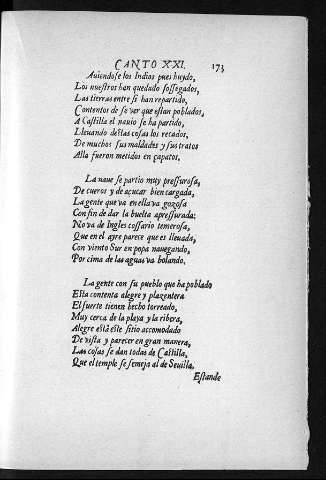 CANTO XXI. 173
Auiendose los Indios pues huydo,
Los nuestros han quedado sossegados,
Las tierras entre si han repartido,
Contentos de se ver que estan poblados,
A Castilla el nauio se ha partido,
Lleuando destas cosas los recados,
De muchos sus maldades y sus tratos
Alla fueron metidos en çapatos,
La naue se partio muy pressurosa,
De cueros y de açucar bien cargada,
La gente que va en ella va gozosa
Con fin de dar la buelta apressurada:
No va de Ingles cossario temerosa,
Que en el ayre parece que es lleuada,
Con viento Sur en popa nauegando,
Por cima de las aguas va bolando.
La gente con su pueblo que ha poblado
Esta contenta alegre y plazentera
El fuerte tienen hecho torreado,
Muy cerca de la playa y la ribera,
Alegre està este sitio acomodado
De vista y parecer en gran manera,
Las cosas se dan todas de Castilla,
Que el temple se semeja al de Seuilla,
Estando